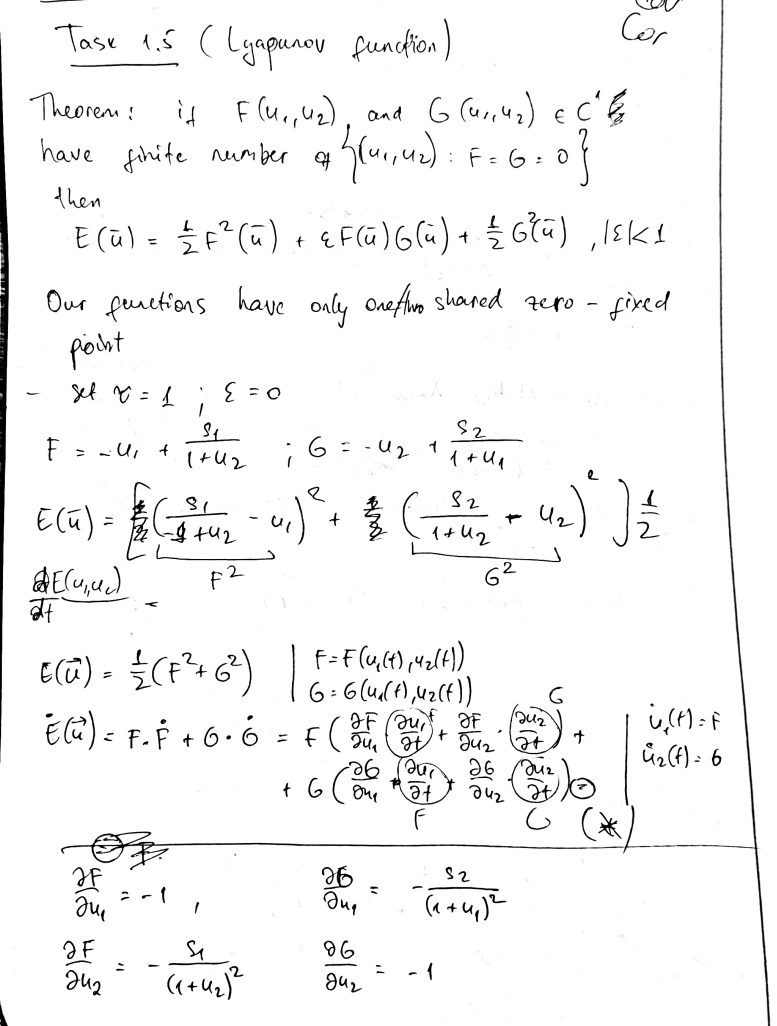 Cor
Task 1.5 (Lyapunov function)
Theorem: if F(u₁,u₂), and G(u₁,u₂) ∈ C¹
have finite number of {(u₁,u₂) : F = G = 0}
then
E(ū) = ½F²(ū) + εF(ū)G(ū) + ½G²(ū) , |ε|<1
Our functions have only one/two shared zero - fixed
point
- set τ = 1 ; ε = 0
F = -u₁ + S₁/(1+u₂) ; G = -u₂ + S₂/(1+u₁)
E(ū) = [(S₁/(1+u₂) - u₁)² + (S₂/(1+u₂) - u₂)²] ½
F² G²
dE(u₁,u₂)/dt =
E(ū) = ½(F²+G²) | F=F(u₁(t),u₂(t))
G=G(u₁(t),u₂(t))
Ė(ū) = F·Ḟ + G·Ġ = F(∂F/∂u₁ · ∂u₁/∂t + ∂F/∂u₂ · ∂u₂/∂t) + | u̇₁(t)=F
F G
+ G(∂G/∂u₁ · ∂u₁/∂t + ∂G/∂u₂ · ∂u₂/∂t) = | u̇₂(t)=G
F G (*)
∂F/∂u₁ = -1 , ∂G/∂u₁ = - S₂/(1+u₁)²
∂F/∂u₂ = - S₁/(1+u₂)² ∂G/∂u₂ = -1